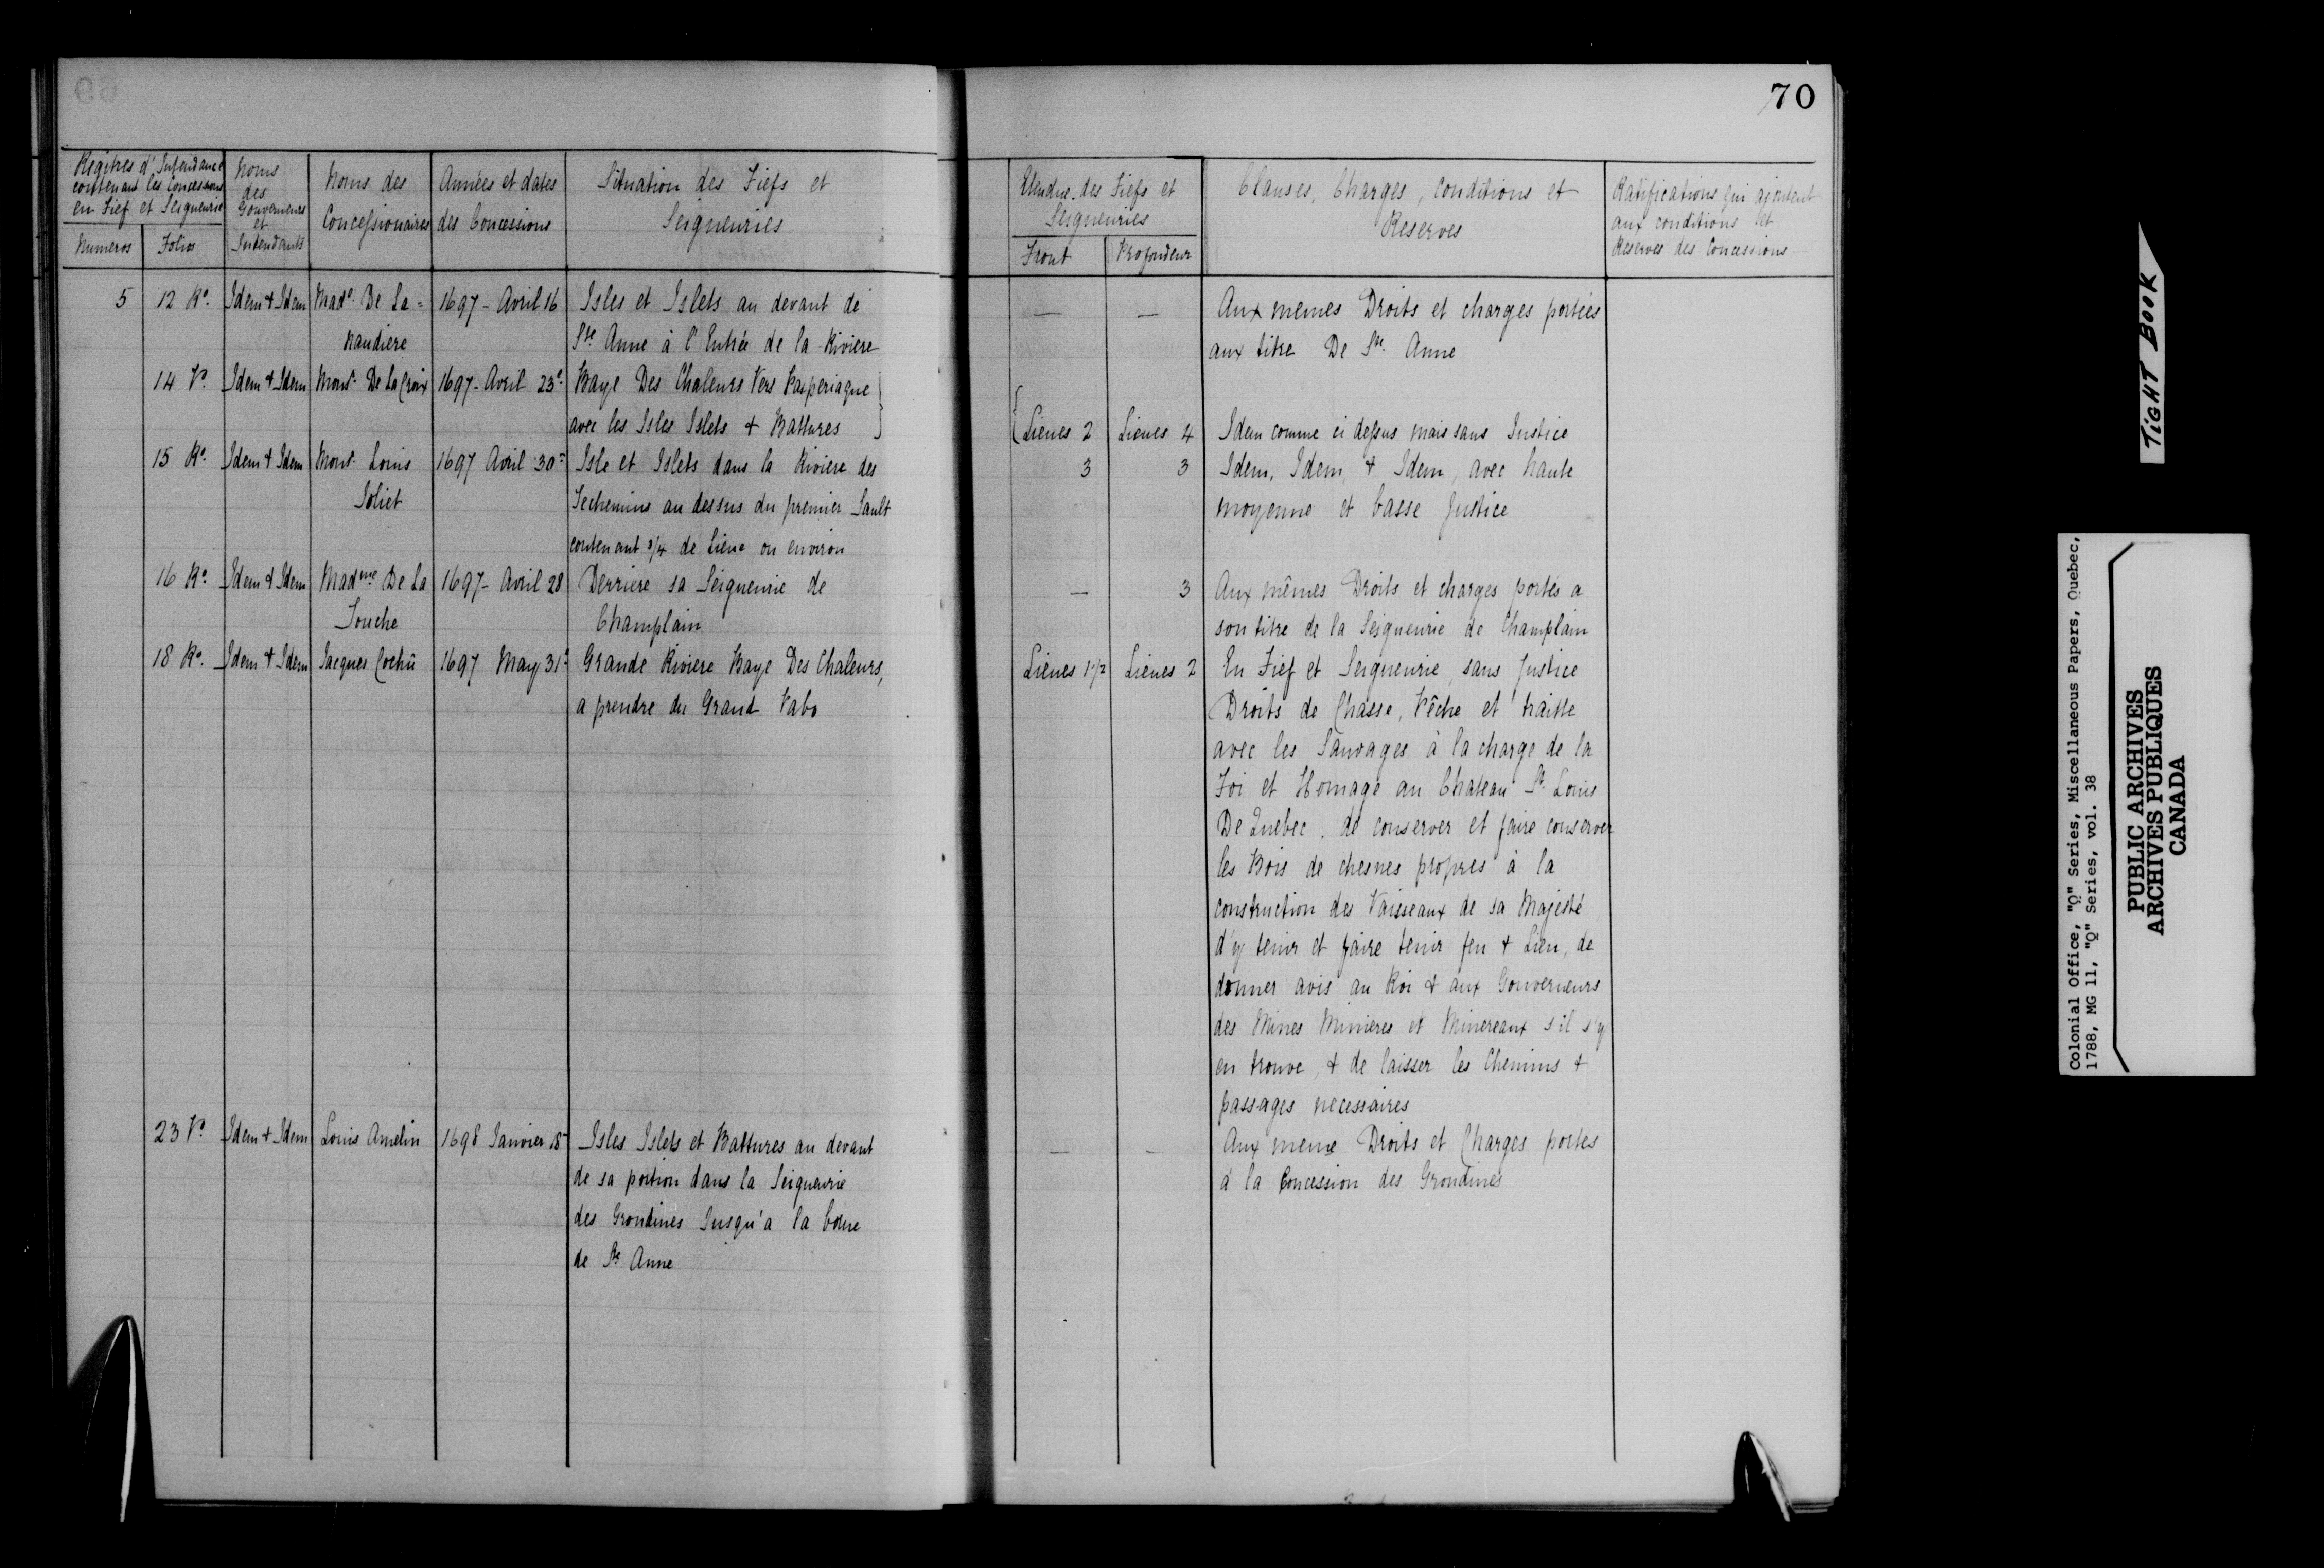 70
Regitres d'Intendance
contenant les Concessions
en Fief et Seigneurie
Numeros Folios
Noms
des
Gouverneurs
et
Intendants
Noms des
Concessionaires
Années et dates
des Concessions
Situation des Fiefs et
Seigneuries
Etendue des Fiefs et
Seigneuries
Front Profondeur
Clauses, Charges, Conditions et
Reserves
Ratifications qui ajoutent
aux conditions et
Reserves des Concessions
5 12 Ro. Idem & Idem Made. De La= 1697 - Avril 16 Isles et Islets au devant de — — Aux memes Droits et charges portées
naudiere Ste Anne à l'Entrée de la Riviere aux titre De Ste. Anne
14 Vo. Idem & Idem Monsr. De la Croix 1697 - Avril 23e. Baye Des Chaleurs Vers Pasperiaque
avec les Isles Islets & Battures Lieues 2 Lieues 4 Idem comme ci dessus mais sans Justice
15 Ro. Idem & Idem Monsr. Louis 1697 Avril 30= Isle et Islets dans la Riviere des 3 3 Idem, Idem, & Idem, avec haute
Joliet Etchemins au dessus du premier Sault moyenne et basse Justice
contenant 3/4 de Lieue ou environ
16 Ro. Idem & Idem Madme De La 1697 - Avril 28 Derriere sa Seigneurie de — 3 Aux mêmes Droits et charges portés a
Touche Champlain son titre de la Seigneurie de Champlain
18 Ro. Idem & Idem Jacques Cochû 1697 May 31e. Grande Riviere Baye Des Chaleurs, Lieues 1 1/2 Lieues 2 En Fief et Seigneurie, sans Justice
a prendre du Grand Pabo Droits de Chasse, Pêche et traitte
avec les Sauvages à la charge de la
Foi et Homage au Chateau St. Louis
De Quebec, de conserver et faire conserver
les Bois de chesnes propres à la
construction des Vaisseaux de sa Majesté
d'y tenir et faire tenir feu & Lieu, de
donner avis au Roi & aux Gouverneurs
des Mines Minieres et Minereaux s'il s'y
en trouve, & de laisser les Chemins &
passages necessaires
23 Vo. Idem & Idem Louis Amelin 1698 Janvier 18 Isles Islets et Battures au devant — — Aux meme Droits et Charges portés
de sa portion dans la Seigneurie à la Concession des Grondines
des Grondines Jusqu'a la borne
de Ste Anne
TIGHT BOOK
Colonial Office, "Q" Series, Miscellaneous Papers, Quebec,
1788, MG 11, "Q" Series, vol. 38
PUBLIC ARCHIVES
ARCHIVES PUBLIQUES
CANADA